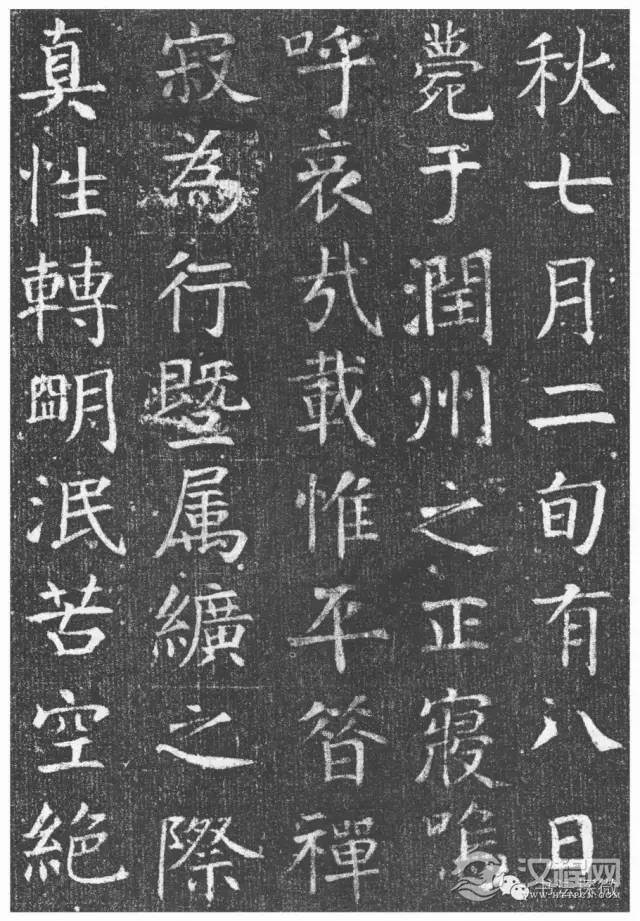 秋七月二旬有八日
薨于潤州之正寢嗚
呼哀㦲載惟平昔禪
寂為行暨属纊之際
真性轉朙泯苦空絕
汉程网
WWW.HTTPCN.COM